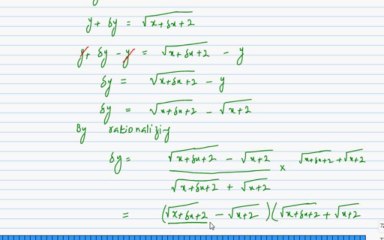 y + δy = √x+δx+2
y + δy - y = √x+δx+2 - y
δy = √x+δx+2 - y
δy = √x+δx+2 - √x+2
By rationalizing
δy = (√x+δx+2 - √x+2) / (√x+δx+2 + √x+2) × √x+δx+2 + √x+2
= (√x+δx+2 - √x+2)(√x+δx+2 + √x+2